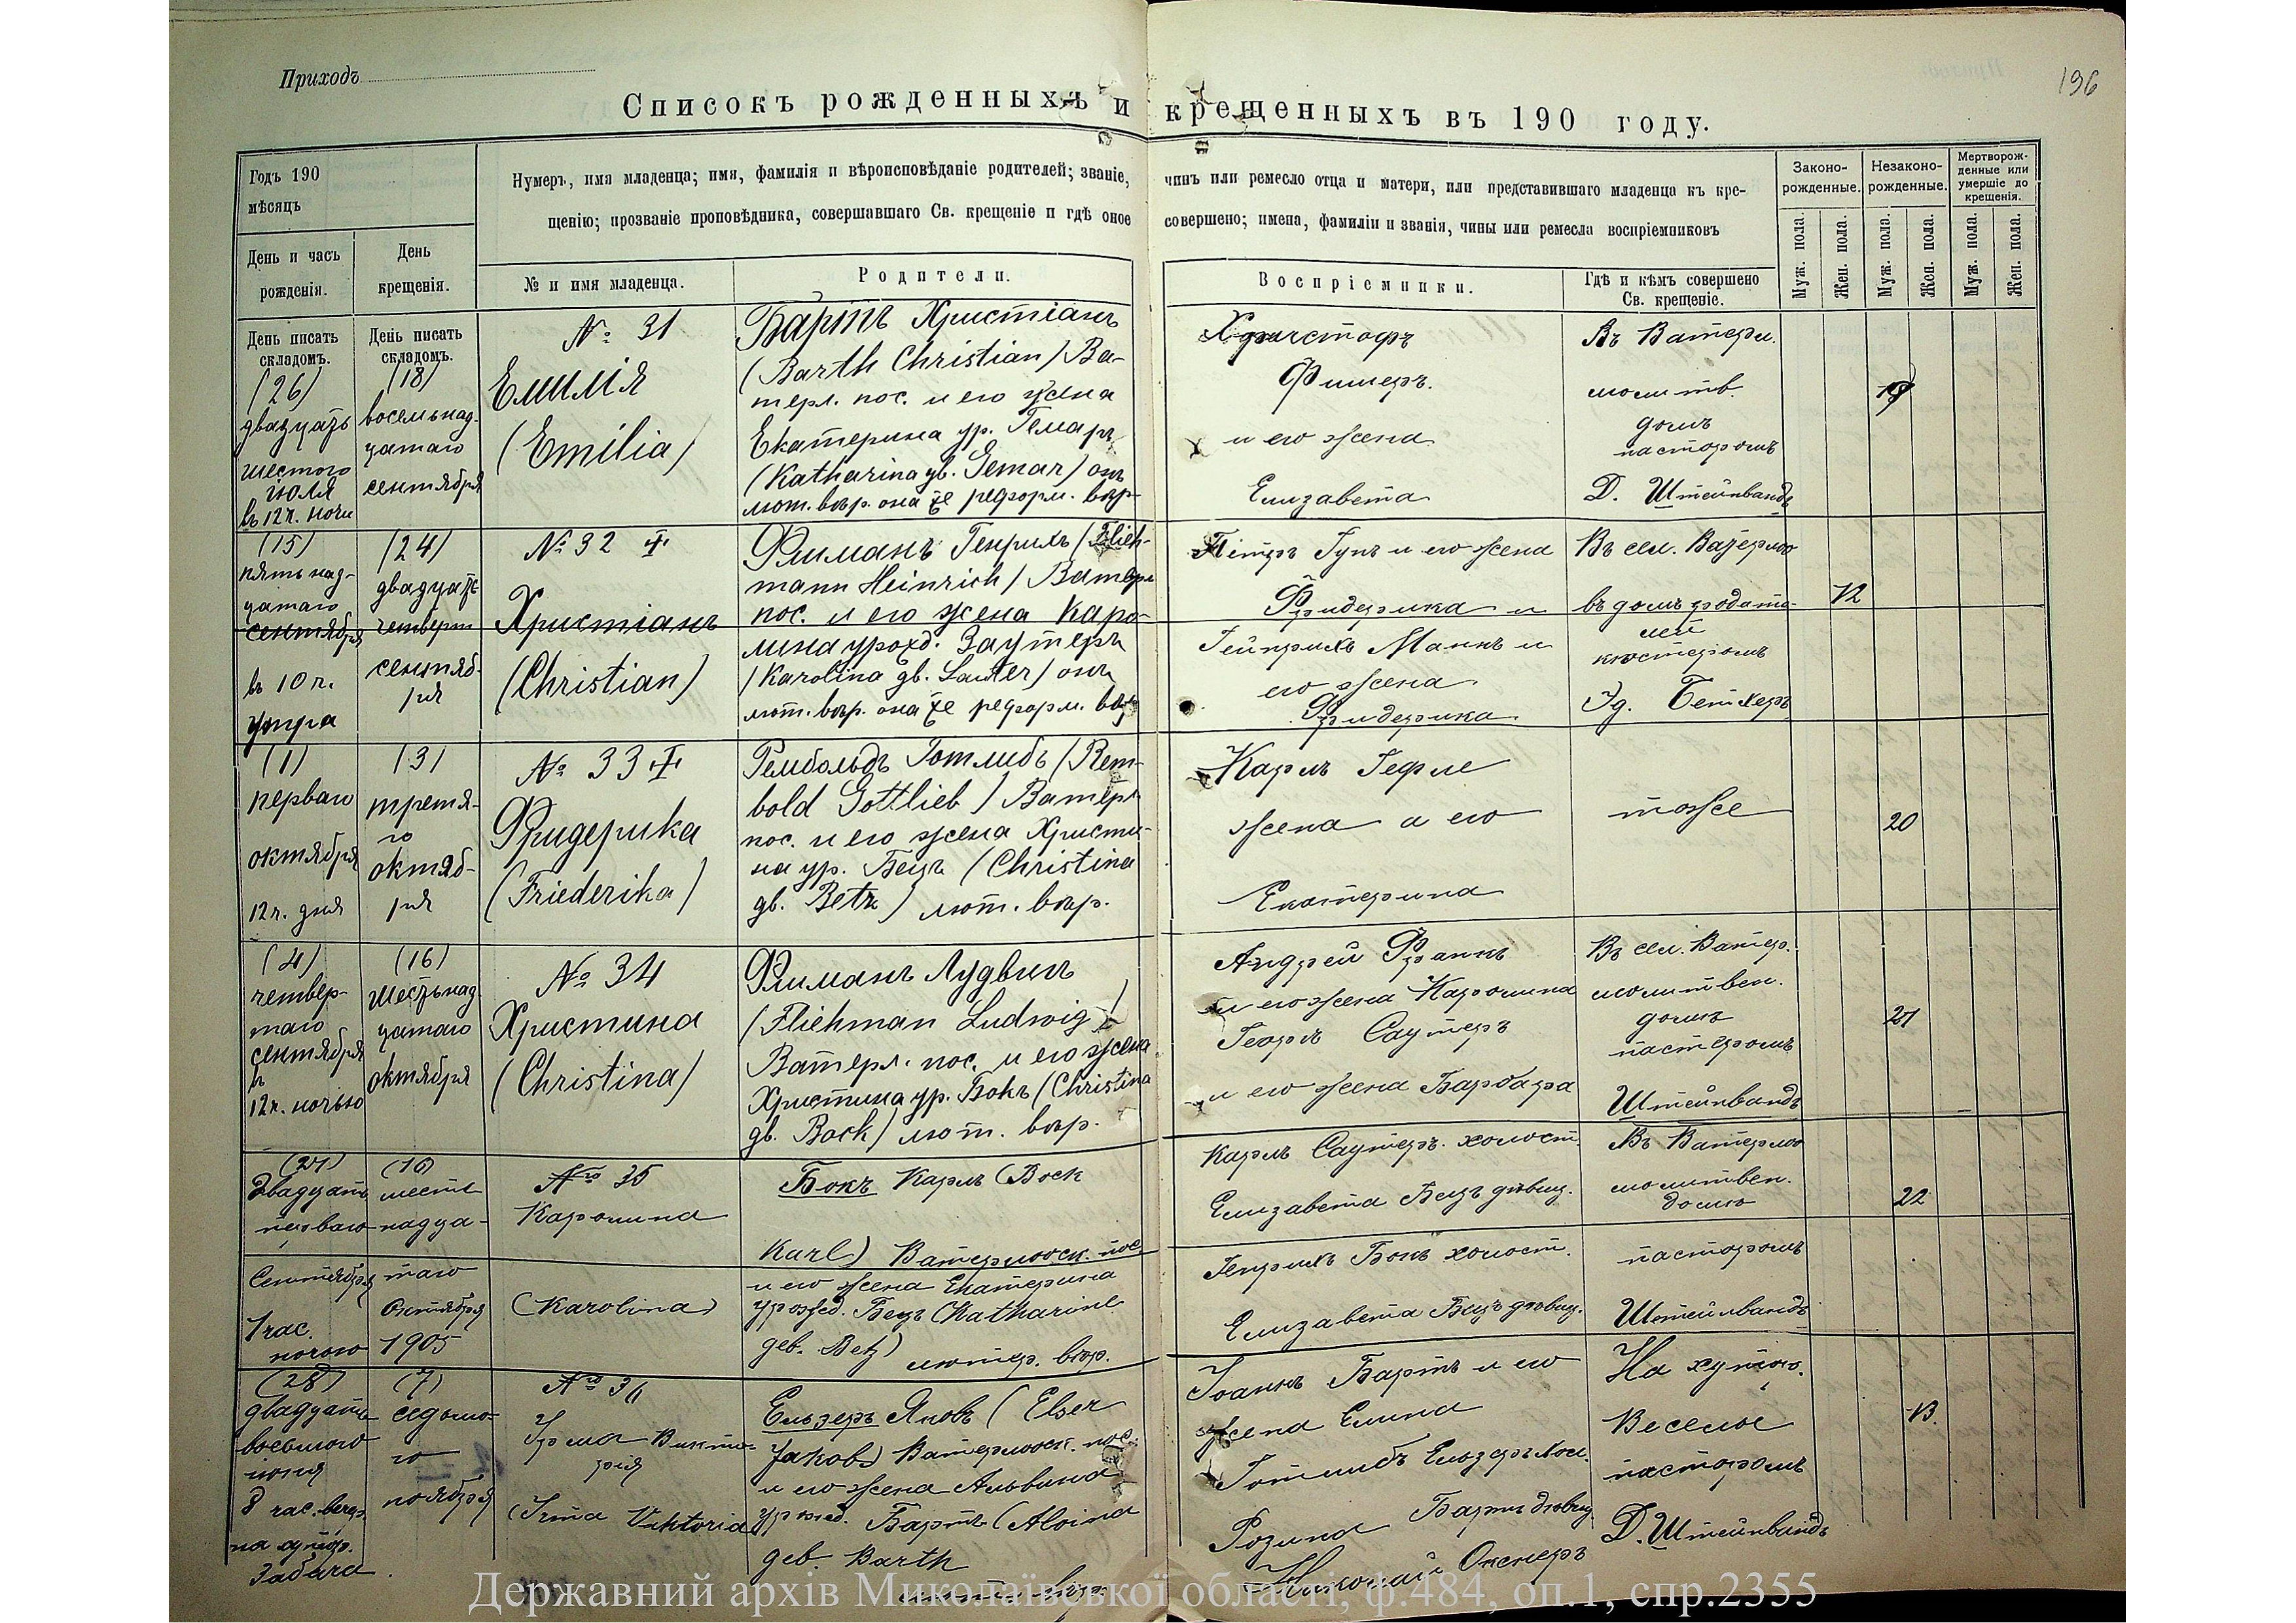 Приходъ
196
Списокъ рожденныхъ и крещенныхъ въ 190 году.
Годъ 190
мѣсяцъ
День и часъ
рожденія.
День
крещенія.
Нумеръ, имя младенца; имя, фамилія и вѣроисповѣданіе родителей; званіе, чинъ или ремесло отца и матери, или представившаго младенца къ кре-
щенію; прозваніе проповѣдника, совершавшаго Св. крещеніе и гдѣ оное совершено; имена, фамиліи и званія, чины или ремесла воспріемниковъ
№ и имя младенца.
Родители.
Воспріемники.
Гдѣ и кѣмъ совершено
Св. крещеніе.
Законо-
рожденные.
Незаконо-
рожденные.
Мертворож-
денные или
умершіе до
крещенія.
Муж. пола.
Жен. пола.
Муж. пола.
Жен. пола.
Муж. пола.
Жен. пола.
День писать
складомъ.
День писать
складомъ.
(26)
двадцать
шестого
іюля
въ 12ч. ночи
(18)
восемьнад-
цатаго
сентября
№ 31
Емилія
(Emilia)
Бартъ Христіанъ
(Barth Christian) Ва-
терл. пос. и его жена
Екатерина ур. Гемаръ
(Katharina дв. Gemar) онъ
лют. вѣр. она же реформ. вѣр.
Христофъ
Фишеръ.
и его жена
Елизавета
Въ Ватерл.
молитв.
домѣ
пасторомъ
Д. Штейнвандъ
19
(15)
пятьнад-
цатаго
сентября
въ 10 ч.
утра
(24)
двадцать
четверт
сентяб-
ря
№ 32 +
Христіанъ
(Christian)
Флиманъ Генрихъ (Flieh-
mann Heinrich) Ватерл
пос. и его жена Каро-
лина урожд. Заутеръ
(Karolina дв. Sauter) онъ
лют. вѣр. она же реформ. вѣр
Петръ Гунъ и его жена
Фридерика и
Гейнрихъ Маннъ и
его жена
Фридерика.
Въ сел. Ватерлоо
въ домѣ родите-
лей
кюстеромъ
Эд. Бетхеръ
12
(1)
перваго
октября
12ч. дня
(3)
третья-
го
октяб-
ря
№ 33 +
Фридерика
(Friederika)
Рембольдъ Готлибъ (Rem-
bold Gottlieb) Ватерл.
пос. и его жена Христи-
на ур. Бецъ (Christina
дв. Betz) лют. вѣр.
Карлъ Гефле
жена и его
Екатерина
тоже
20
(4)
четвер-
таго
сентября
въ
12ч. ночью
(16)
шестьнад
цатаго
октября
№ 34
Христина
(Christina)
Флиманъ Лудвигъ
(Fliehman Ludwig)
Ватерл. пос. и его жена
Христина ур. Бокъ (Christina
дв. Bock) лют. вѣр.
Андрей Франкъ
и его жена Каролина
Георгъ Саутеръ
и его жена Барбара
Въ сел. Ватер.
молитвен.
домѣ
пасторомъ
Штейнвандъ
21
(21)
двадцать
перваго
Сентября
1 час.
ночью
(16)
шест
надца-
таго
Октября
1905
№ 35
Каролина
(Karolina)
Бокъ Карлъ (Bock
Karl) Ватерлооск. пос.
и его жена Екатерина
урожед. Бецъ (Katharine
geb. Betz) лютер. вѣр.
Карлъ Саутеръ. холост.
Елизавета Бецъ дѣвиц.
Генрихъ Бокъ холост.
Елизавета Бецъ дѣвиц.
Въ Ватерлоо
молитвен.
домѣ
пасторомъ
Штейнвандъ
22
(28)
двадцать
восьмого
іюня
8 час. вечер.
на хутор.
(7)
седьмо-
го
ноября
Ирма Викто-
рія
(Irma Viktoria
Ельзеръ Яковъ (Elser
Jakob) Ватерлооск. пос.
и его жена Альвина
урожед. Бартъ (Alvina
geb. Barth
Іоаннъ Бартъ и его
жена Елина
Готлибъ Ельзеръ
Розина Бартъ дѣвиц.
Николай Окснеръ
На хутор.
Веселое
пасторомъ
Д. Штейнвандъ
13.
Державний архів Миколаївської області, ф.484, оп.1, спр.2355